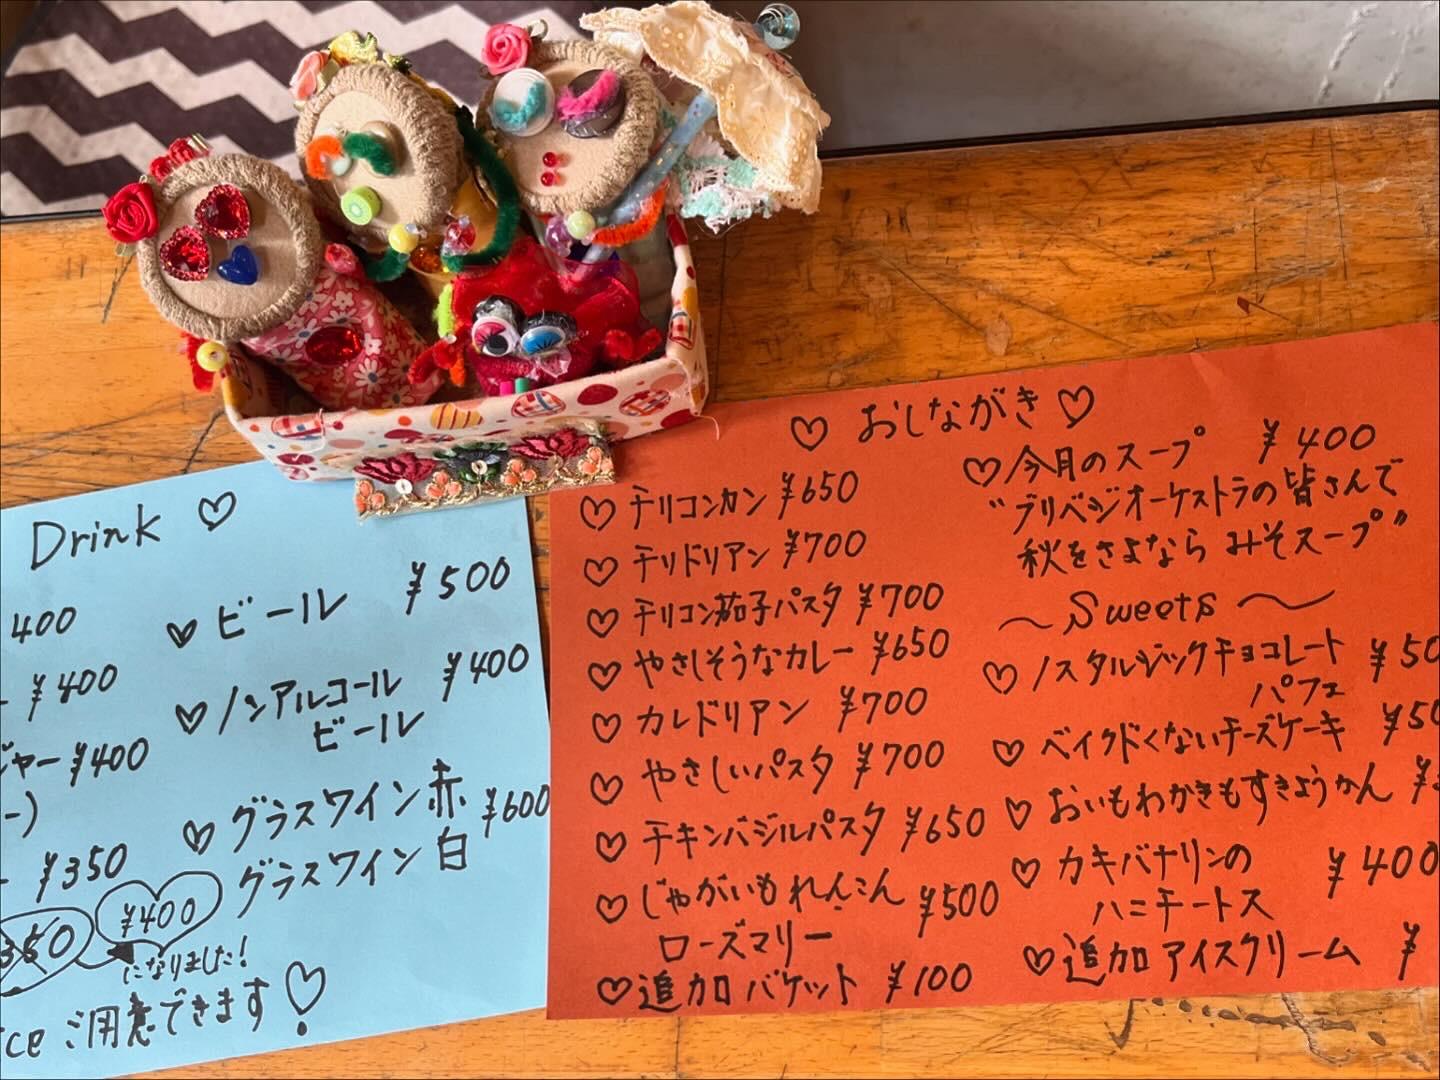 Drink ♡
400
ー ¥400
ジャー ¥400
ー)
ー ¥350
350 ¥400
になりました!
ice ご用意できます♡!
♥ ビール ¥500
♥ ノンアルコール ¥400
ビール
♥ グラスワイン赤
¥600
グラスワイン白
♡ おしながき ♡
♡ チリコンカン ¥650
♡ チリドリアン ¥700
♡ チリコン茄子パスタ ¥700
♡ やさしそうなカレー ¥650
♡ カレドリアン ¥700
♡ やさしいパスタ ¥700
♡ チキンバジルパスタ ¥650
♡ じゃがいもれんこん ¥500
ローズマリー
♡ 追加バケット ¥100
♡ 今月のスープ ¥400
"ブリベジオーケストラの皆さんで
秋をさよなら みそスープ"
〜 Sweets 〜
♡ ノスタルジックチョコレート ¥50
パフェ
♡ ベイクドくないチーズケーキ ¥50
♡ おいもわかきもすきようかん ¥
♡ カキバナリンの ¥400
ハニチートス
♡ 追加アイスクリーム ¥